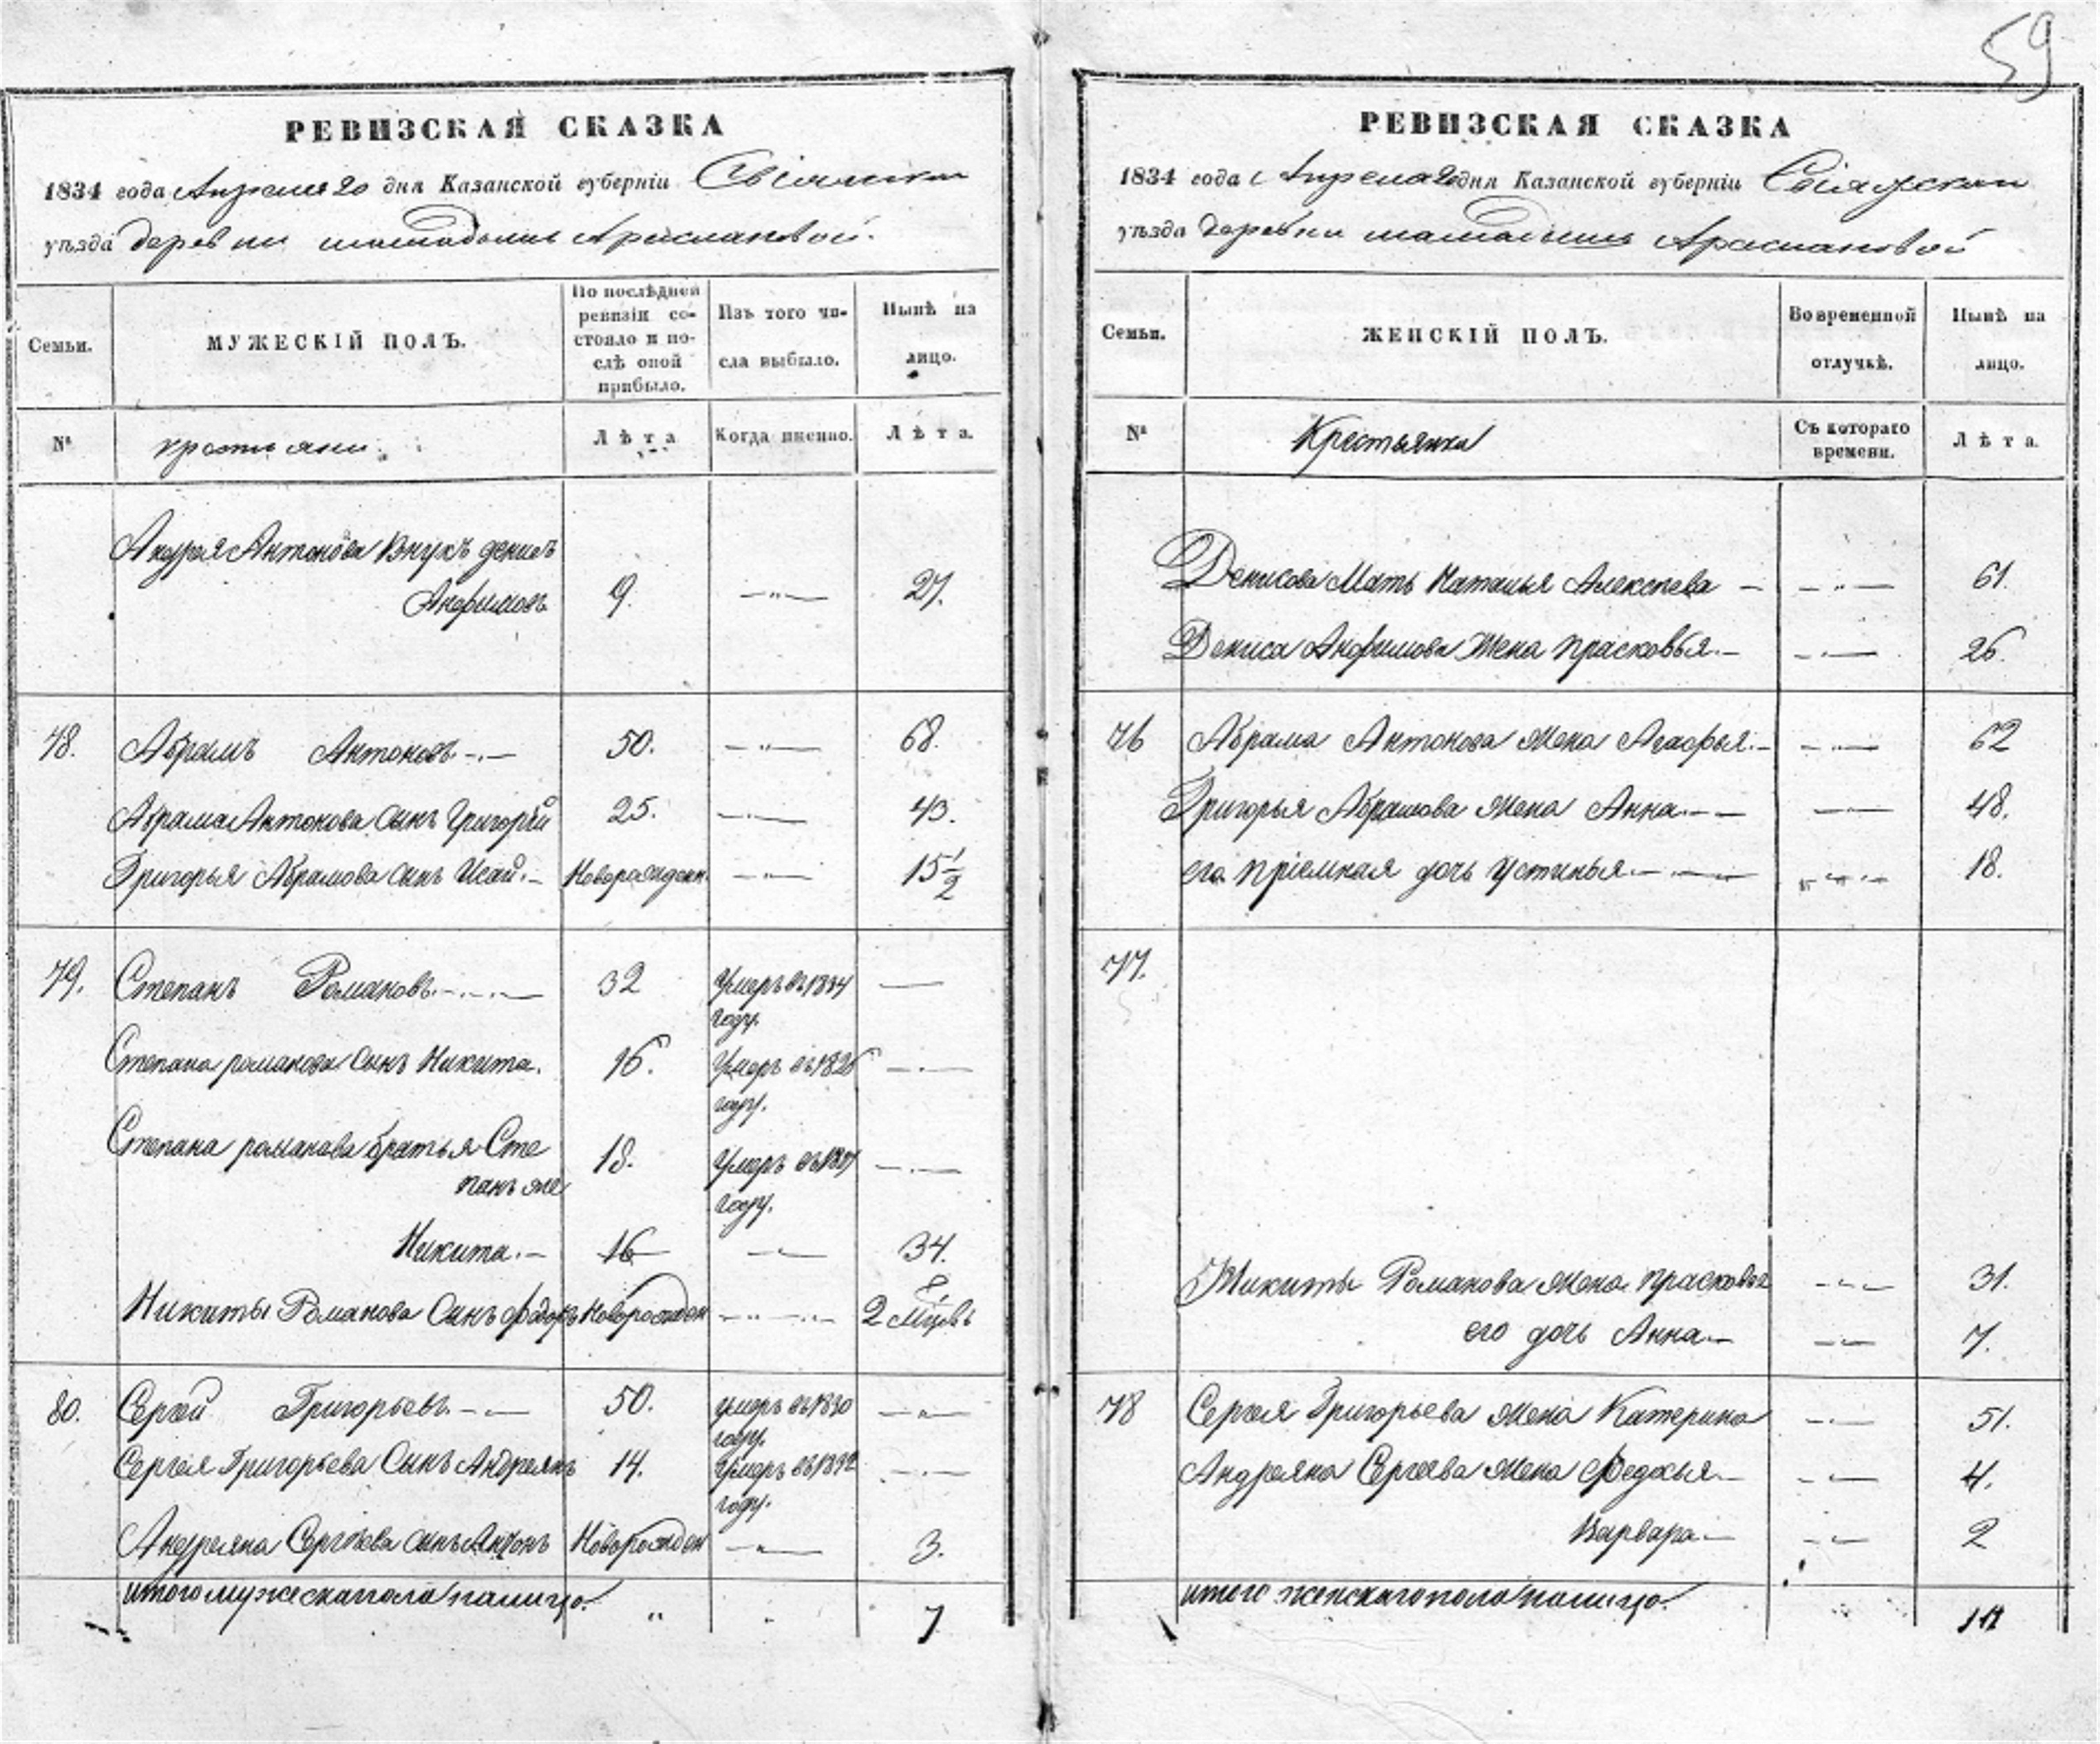 59
РЕВИЗСКАЯ СКАЗКА
1834 года Апреля 20 дня Казанской губерніи
уѣзда деревни
Семьи.
МУЖЕСКІЙ ПОЛЪ.
По послѣдней ревизіи со-
стояло и по-
слѣ оной
прибыло.
Изъ того чи-
сла выбыло.
Нынѣ на
лицо.
№
крестьяни
Лѣта
Когда именно.
Лѣта.
Андрея Антонова Внукъ денисъ
Анфимовъ 9. 27.
78. Абрамъ Антоновъ 50. 68.
Абрама Антонова сынъ Григорій 25. 43.
Григорья Абрамова сынъ Исай. Новорожден. 15 1/2
79. Степанъ Романовъ 32 Умеръ въ 1834
году.
Степана романова сынъ Никита. 16. Умеръ въ 1826
году.
Степана романова братья Сте
панъ же 18. Умеръ въ
году.
Никита. 16 34.
Никиты Романова Сынъ Федоръ Новорожден 2 Мцовъ
80. Сергей Григорьевъ 50. умеръ въ 1830
году.
Сергея Григорьева Сынъ Андреянъ 14. Умеръ въ 1832
году.
Андреяна Сергѣева сынъ Новорожден 3.
итого мужеска пола налицо. 7
РЕВИЗСКАЯ СКАЗКА
1834 года Апреля 20 дня Казанской губерніи Свіяжскаи
уѣзда деревни
Семьи.
ЖЕНСКІЙ ПОЛЪ.
Во временной
отлучкѣ.
Нынѣ на
лицо.
№
Крестьянка
Съ котораго
времени.
Лѣта.
Денисова Мать Наталья Алексеева 61.
Дениса Анфимова Жена прасковья. 26.
76 Абрама Антонова жена Агафья. 62
Григорья Абрамова жена Анна 48.
его приемная дочь Устинья 18.
77.
Никиты Романова жена прасковья 31.
его дочь Анна 7.
78 Сергея Григорьева жена Катерина 51.
Андреяна Сергеева жена Федосья 4.
Варвара 2
итого женскаго пола налицо. 11